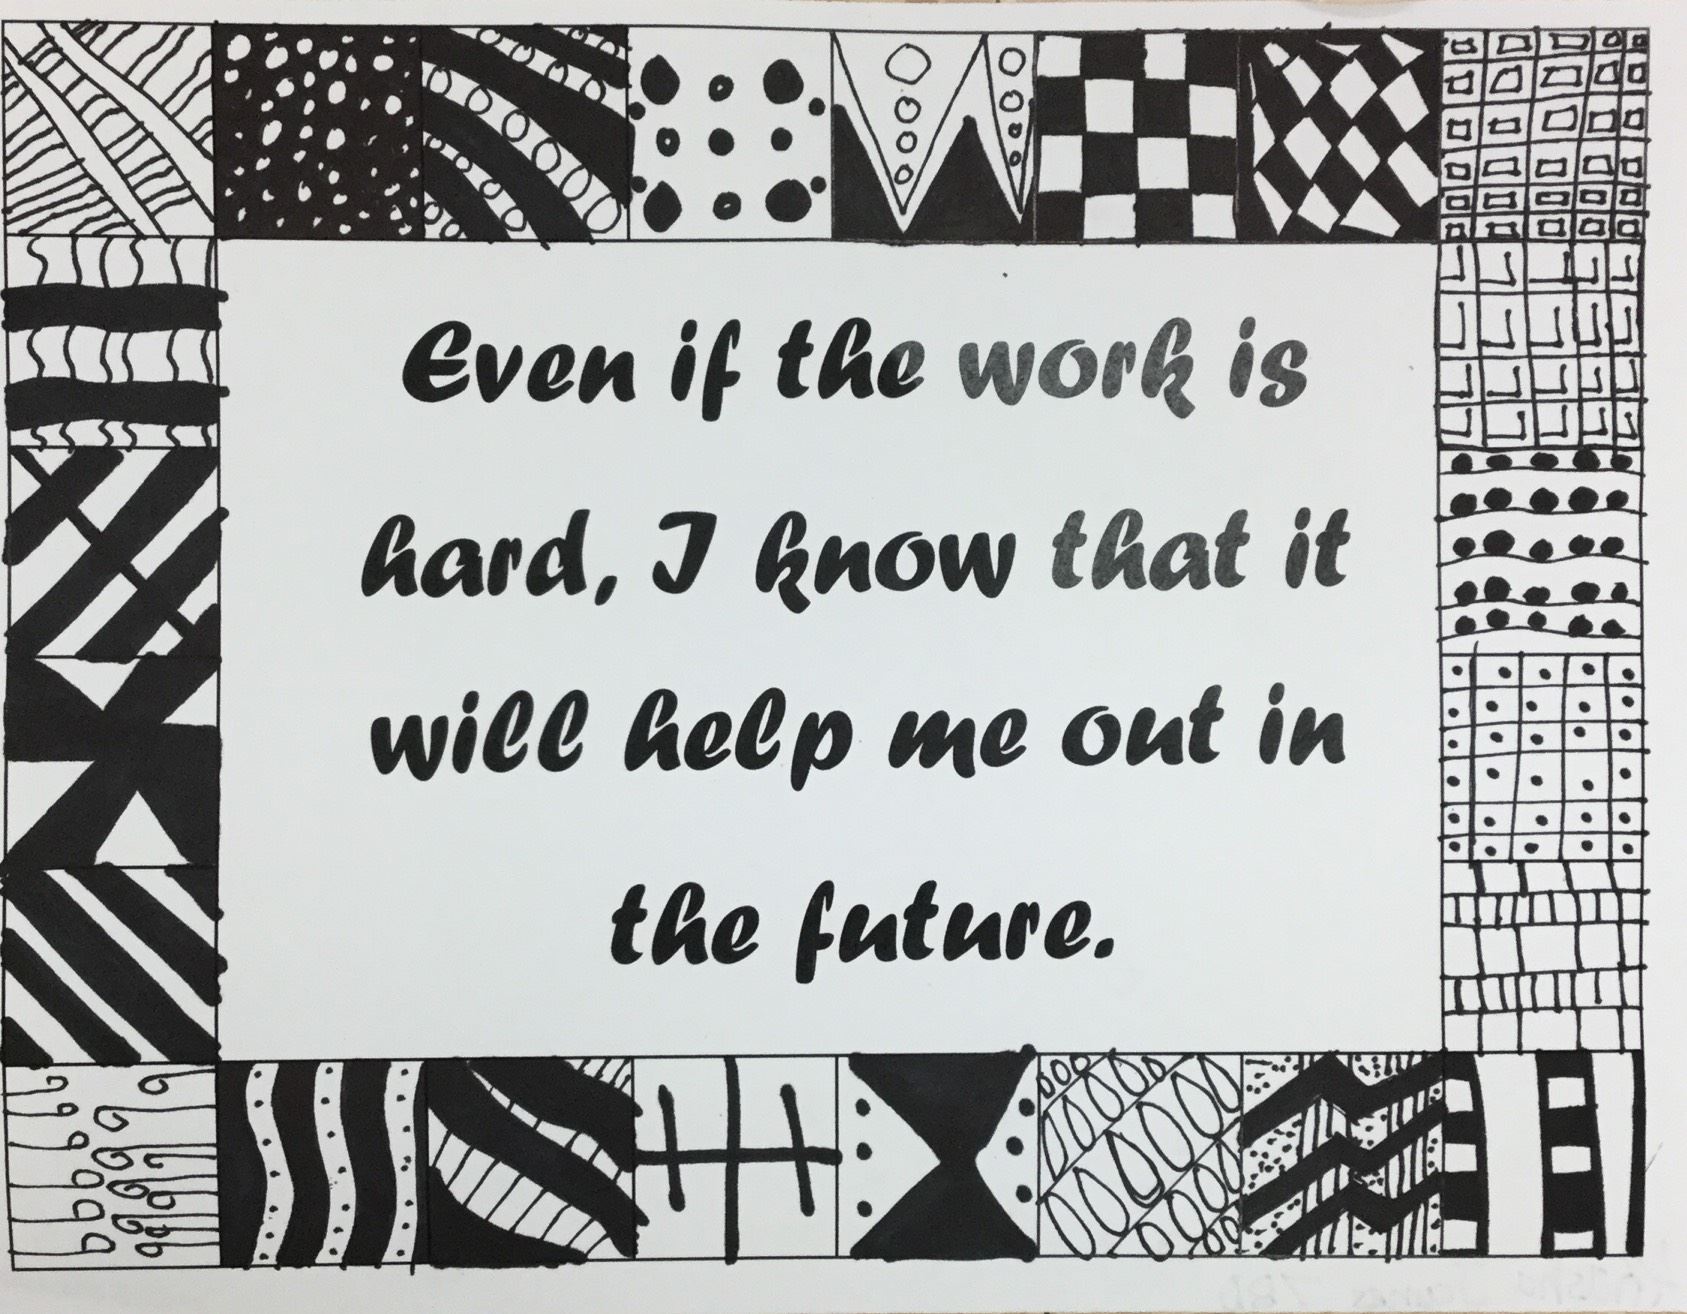 Even if the work is
hard, I know that it
will help me out in
the future.